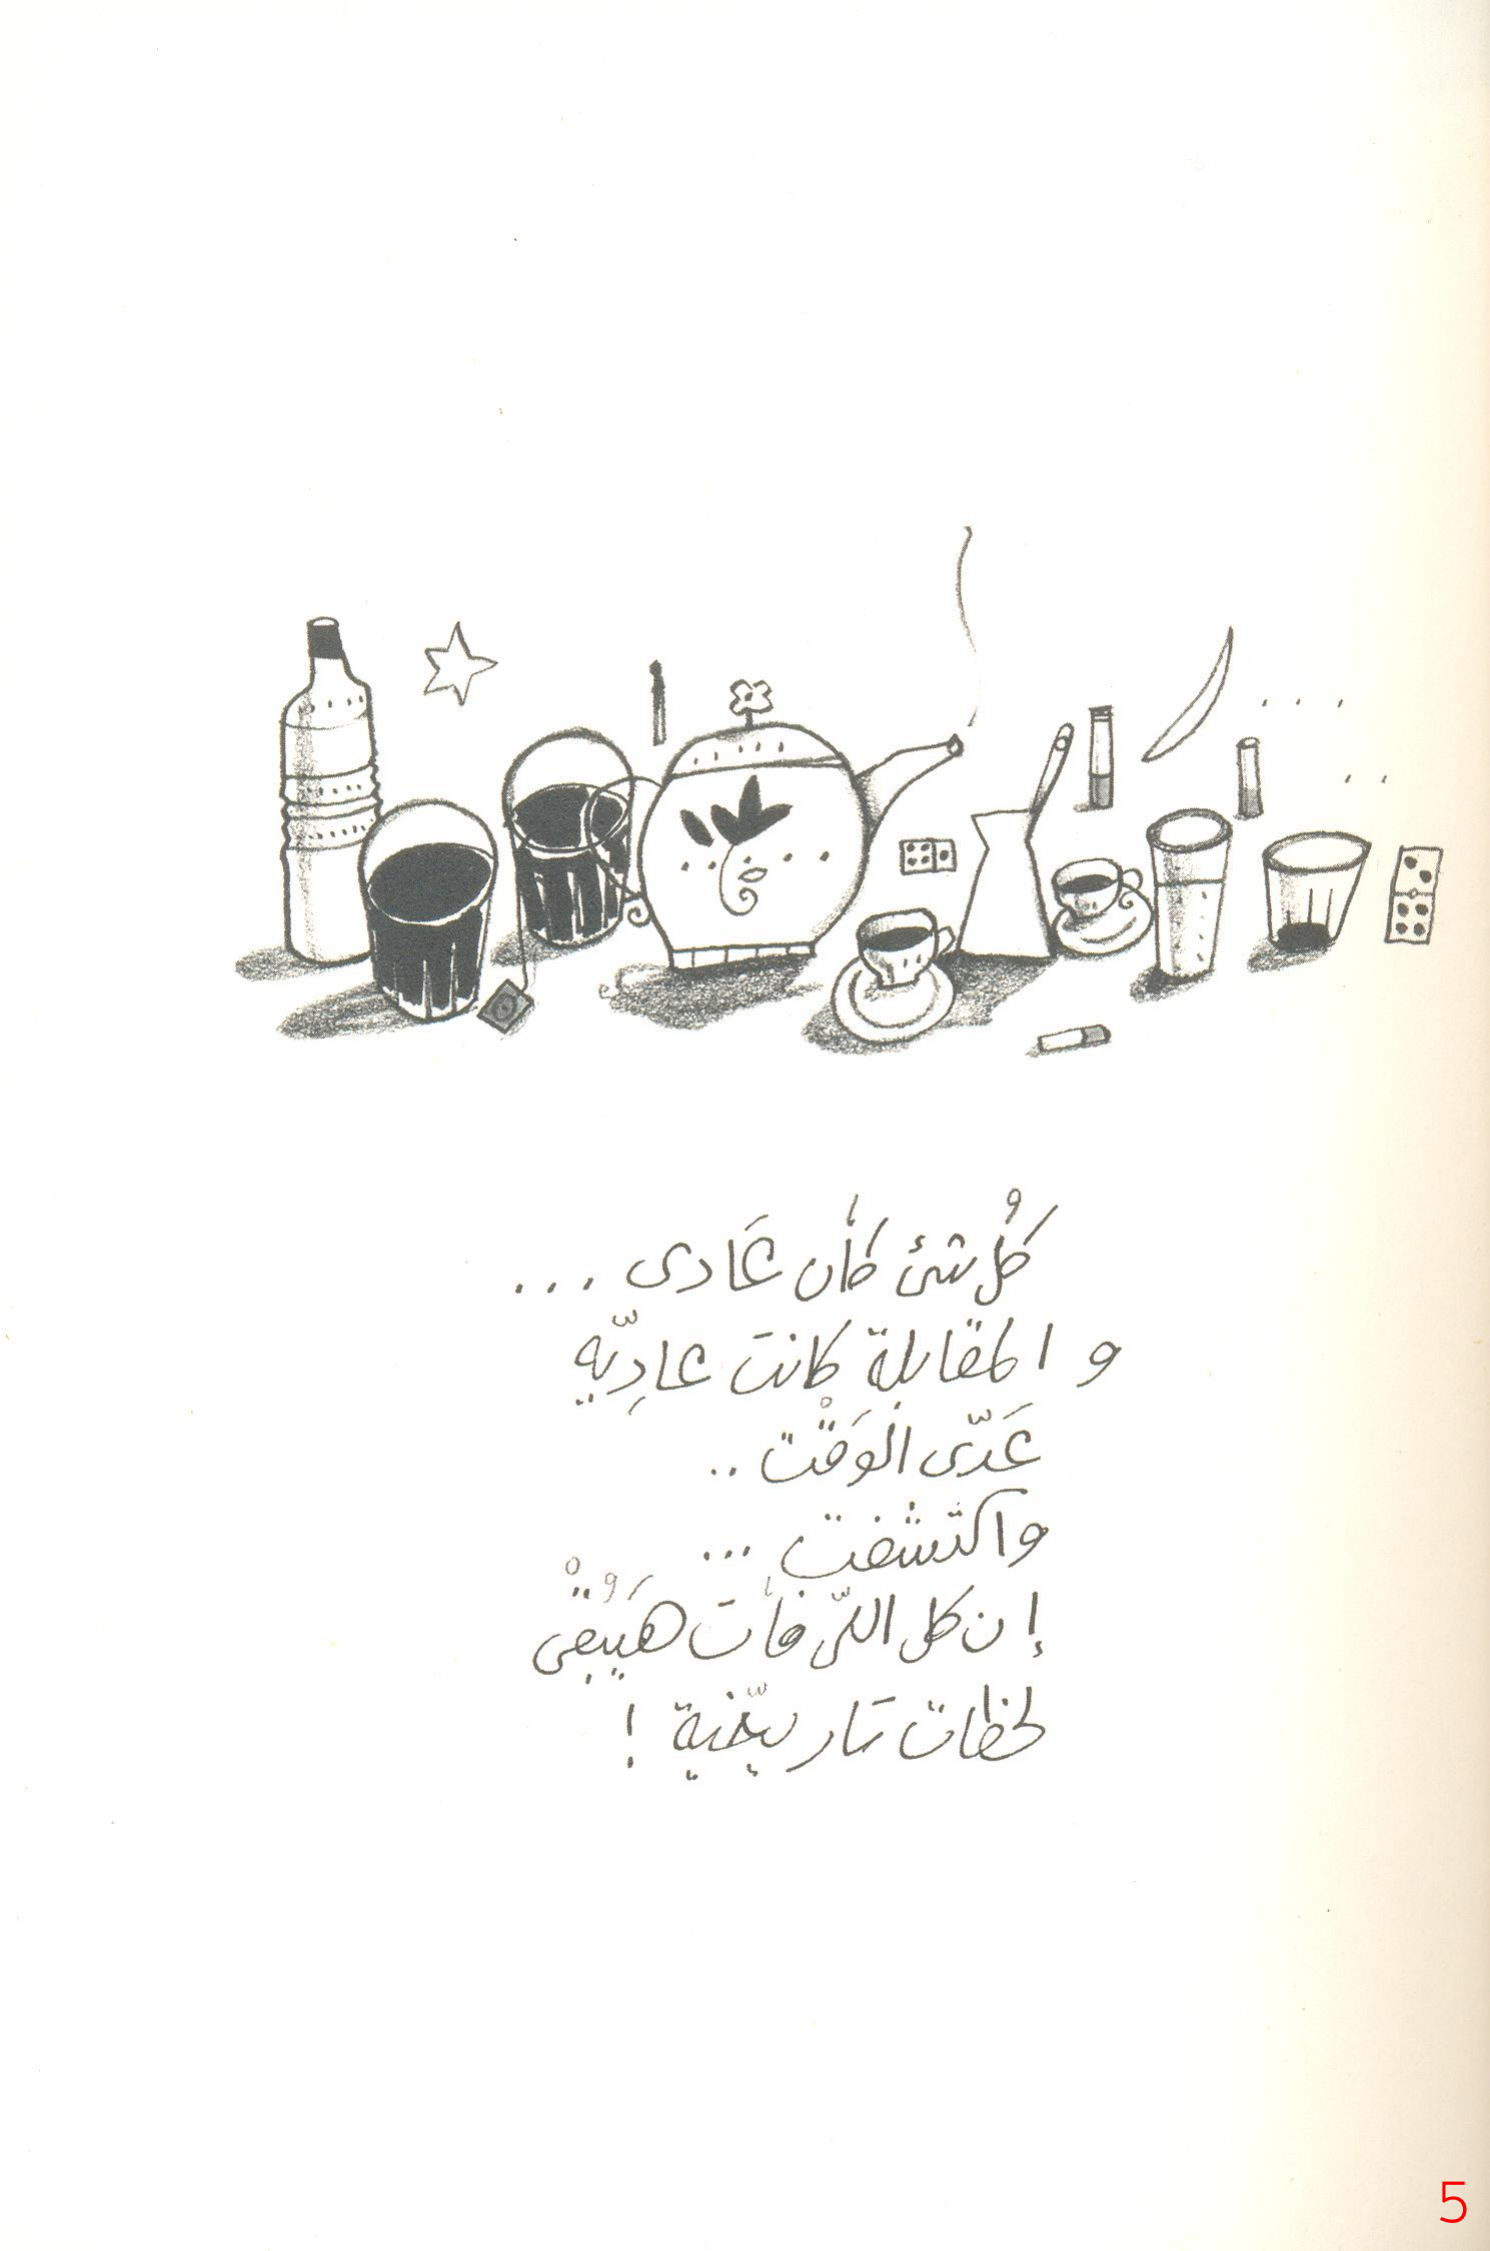 كُلُّ شئ كان عَادى ...
و المقابلة كانت عادِيّه
عَدّى الوَقْت ..
واكتشفت ...
إن كل اللّى فات هَيُبْقى
لحظات تَاريخّية !
5